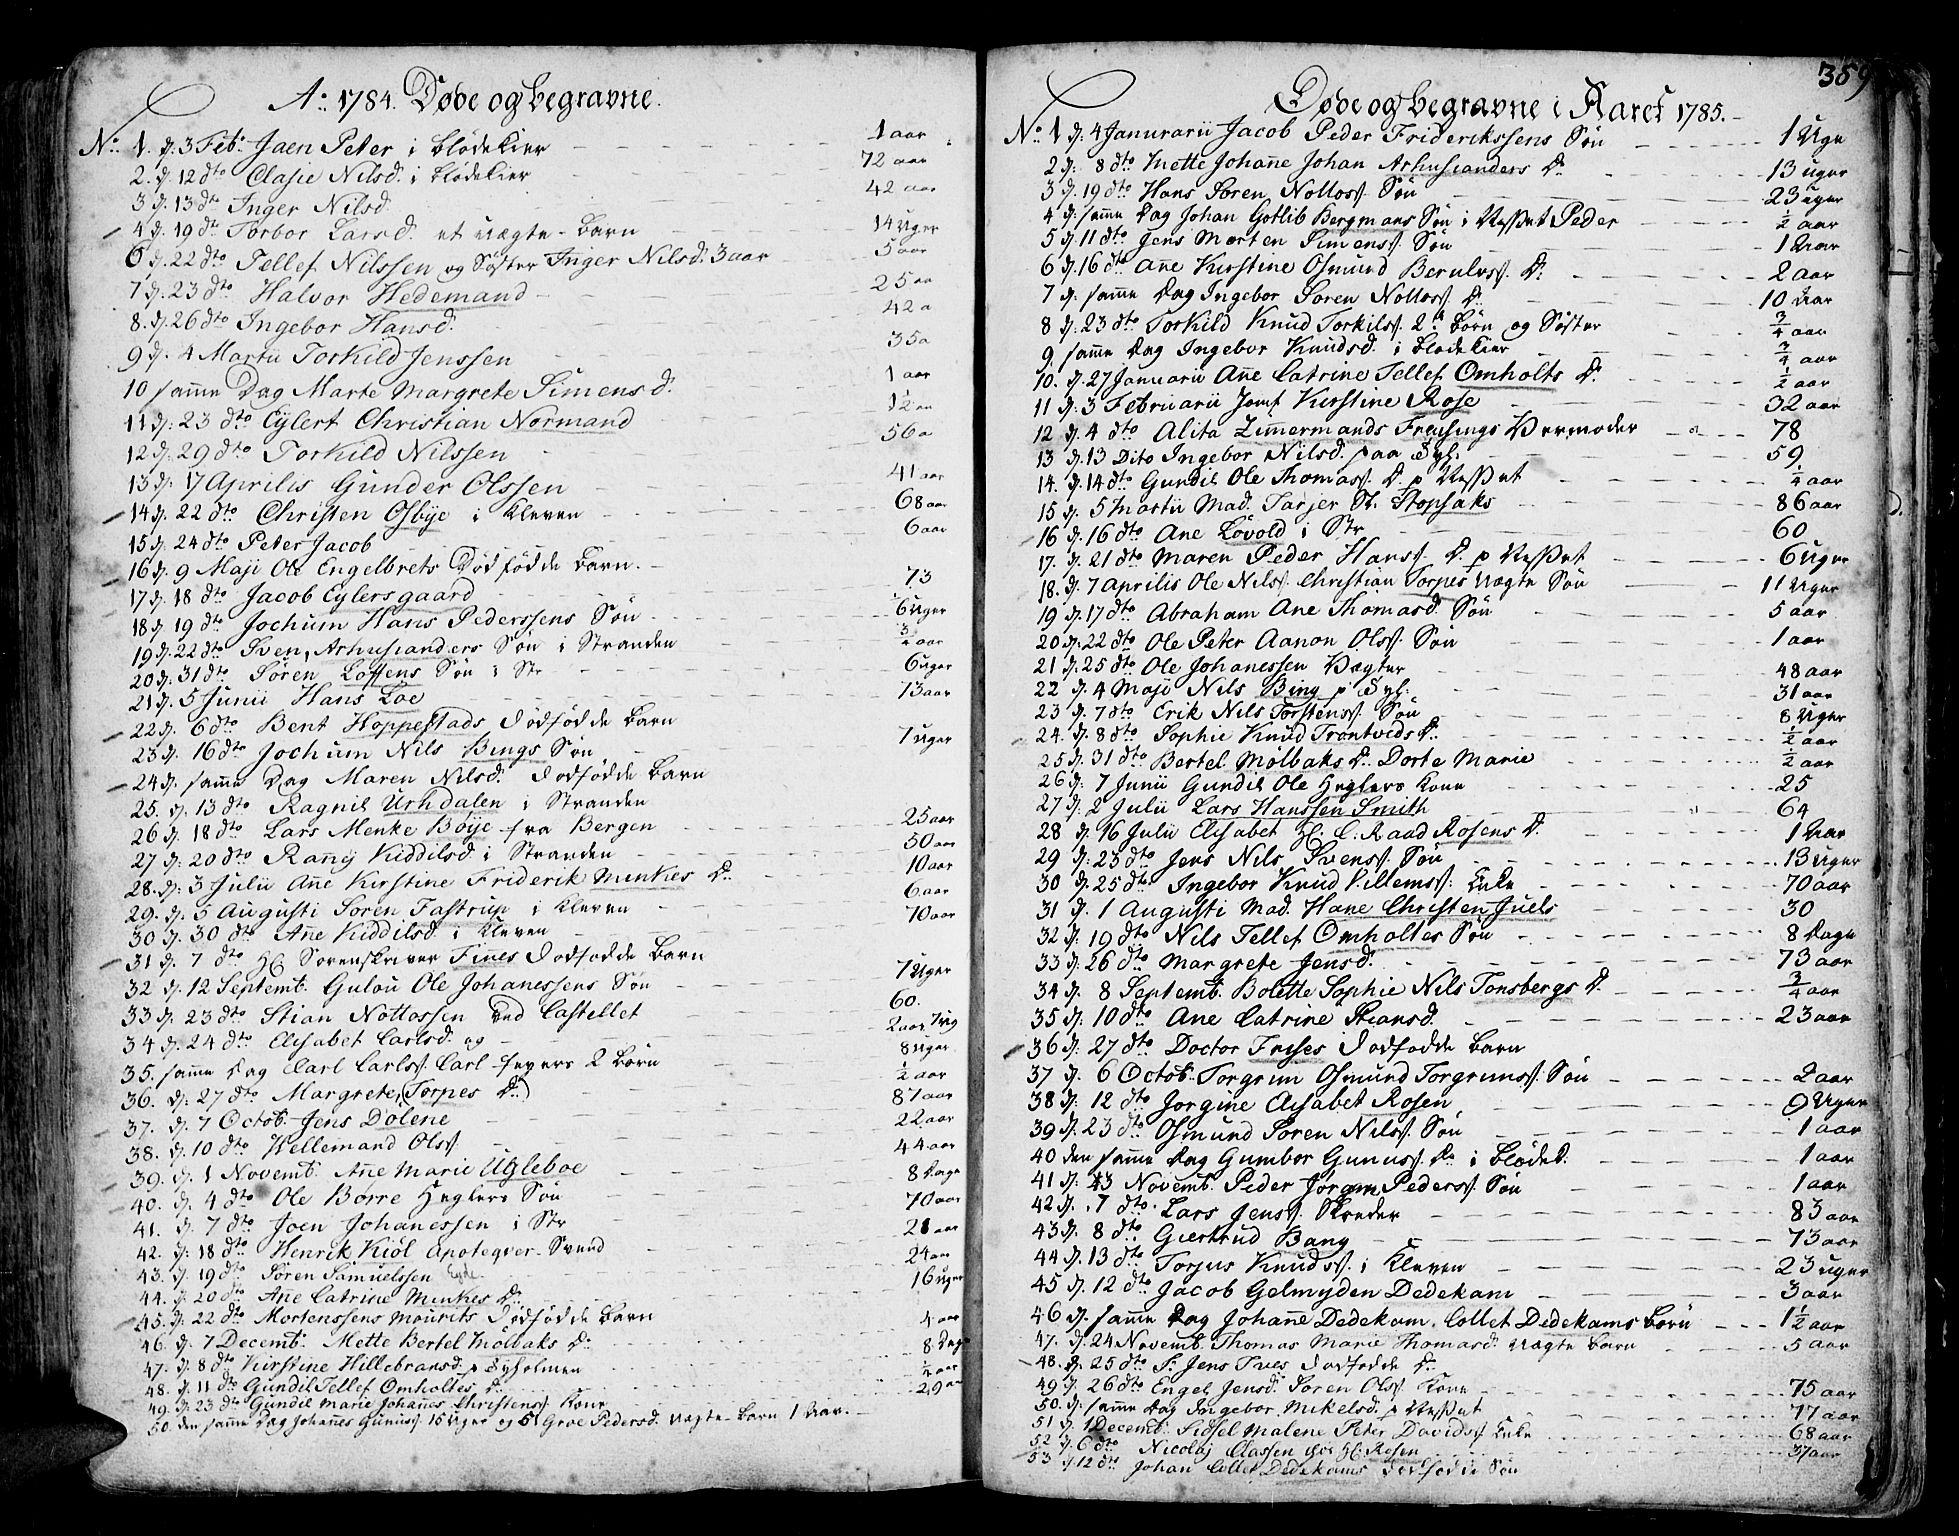 Ao 1784. Døde og begravne.
No. 1. d. 3 Feb: Jaen Peter i Blødekier 1 aar
2. d. 12 dto Clasie Nilsd. i Blødekier 72 aar
3 d. 13 dto Inger Nilsd. 42 aar
4 d. 19 dto Torbor Larsd. et uægte Barn 14 Uger
6 d. 22 dto Tellef Nilssen og Søster Inger Nilsd: 3 aar 5 aar
7 d. 23 dto Halvor Hedemand 25 aa
8. d. 26 dto Ingebor Hansd. 42 a
9 d. 4 Martii Torkild Jenssen 35 a
10 samme Dag Marte Margrete Simensd. 1 aar
11 d: 23 dto Eylert Christian Normand 1/2 aa
12 d: 29 dto Torkild Nilssen 56 a
13 d: 17 Aprilis Gunder Olssen 41 aar
14 d: 22 dto Christen Osbye i Kleven 68 aar
15 d: 24 dto Peter Jacob 6 aar
16 d. 9 Maji Ole Engelbrets Dødfødde Barn.
17 d. 18 dto Jacob Eylersgaard 73
18 d 19 dto Jochum Hans Pederssens Søn 6 Uger
19 d. 22 dto Sven Arhusianders Søn i Stranden 3/4 aar
20 d: 31 dto Søren Loffens Søn i Str 6 uger
21 d. 5 Junii Hans Loe 73 aar
22 d. 6 dto Bent Hoppestads Dødfødde Barn
23 d. 16 dto Jochum Nils Bings Søn 7 uger
24 d. samme Dag Maren Nilsd. Dødfødde Barn
25. d. 13 dto Ragnil Urhdalen i Stranden
26 d. 18 dto Lars Menke Bøye fra Bergen 25 aar
27 d: 20 dto Ranney Kiddilsd. i Stranden 50 aar
28. d: 3 Julii Anne Kirstine Friderik Menkes D. 10 aar
29. d. 5 Augusti Soren Fastrup i Kleven 6 aar
30 d. 30 dto Anne Kiddilsd. i Kleven 70 aar
31 d. 7 dto Hr. Sorenskriver Fines Dødfødde Barn
32 d. 12 Septemb. Gulou Ole Johanessens Søn 7 Uger
33 d. 23 dto Stian Nottossen ved Castellet 60.
34 d. 24 dto Elisabet Carlsd. og 2 aar 7 ug
35. samme Dag Carl Carlss. Carl 2 Børn 8 uger
36. d: 27 dto Margrete Torpes D. 1/2 aar
37. d. 7 Octob. Jens Dolene 87 aar
38. d. 10 dto Hellemand Olss. 22 aar
39. d. 1 Novemb. Anne Marie Ugleboe 44 aar
40. d. 4 dto Ole Børre Heglers Søn 8 Dage
41. d. 7 dto Joen Johanessen i Str 70 aar
42. d: 18 dto Henrik Kiøl Apoteqver-Svend 21 aar
43. d. 19 dto Søren Samuelssen Eyde 24 aar
44. d. 20 dto Anne Catrine Menkes D. 16 uger
45. d. 22 dto Mortenssens Maurits Dødfødde Barn
46. d. 7 Decemb. Mette Bertel Mølbaks D. 4 aar
47. d. 8 dto Kirstine Hillebransd. p Tyholmen 8 Dage
48. d. 11 dto Gundil Tellef Omholtes D. 1/2 aar
49. d. 23 dto Gundil Marie Johanes Christenss. Kone 29 aa
50. den samme Dag Johannes Gunuss. 15 Uger og 51 Groe Pedersd. uægte Barn 1 Aar.
359
Døde og begravne i Aaret 1785.
No. 1 d. 4 Janurarii Jacob Peder Friderikssens Søn 1 Uge
2 d. 8 dto Mette Johanne Johan Arhusianders D. 13 uger
3 d. 19 dto Hans Soren Nottoss. Søn 23 uger
4 d: samme Dag Johan Gotlib Bergmans Søn i Næsset Peder 1/2 aar
5 d. 11 dto Jens Morten Simenss. Søn 1 Aar
6 d. 16 dto Anne Kirstine Osmund Berulvss. D. 2 aar
7 d: samme Dag Ingebor Soren Nottoss. D. 10 Aar
8 d: 23 dto Torkild Knud Torkilss. 2de Børn og Søster 3/4 aar
9. samme Dag Ingebor Knudsd. i Blødekier 3/4 aar
10. d. 27 Januarii Anne Catrine Tellef Omholts D. 1/2 aar
11 d: 3 Februarii Jomf Kirstine Rose 32 aar
12 d. 4 dto Alita Zimmermands Freisings Vermoder 78
13 d. 13 Dito Ingebor Nilsd. paa Tyh. 59
14. d. 14 dto Gundil Ole Thomass. D. p Næsset 1/4 aar
15 d. 5 Martii Mad. Tarjer St. Stopsaks 86 aar
16 d. 16 dto Ane Løvold i Str 60
17. d. 21 dto Maren Peder Hanss. D. p Næsset 6 uger
18. d. 7 Aprilis Ole Nilss. Christian Torpes uægte Søn 11 Uger
19 d. 17 dto Abraham Ane Thomasd. Søn 5 aar
20 d. 22 dto Ole Peter Aanon Olss. Søn 1 aar
21 d. 25 dto Ole Johanessen Vægter 48 aar
22 d. 4 Maji Nils Bing p Tyh. 31 aar
23 d. 7 dto Erik Nils Torstenss. Søn 8 Uger
24. d. 8 dto Sophie Knud Trontveds D. 1/2 aar
25 d. 31 dto Bertel Mølbaks D. Dorte Marie 1/2 aar
26 d. 7 Junii Gundil Ole Heglers Kone 25
27 d. 2 Julii Lars Hanssen Smith 64
28 d. 16 Julii Elisabet Hr. C. Raad Rosens D. 1 Aar
29 d: 23 dto Jens Nils Svenss. Søn 13 uger
30 d. 25 dto Ingebor Knud Villemss. Enke 70 aar
31 d. 1 Augusti Mad. Hane Christen Juels 30
32 d. 19 dto Nils Tellef Omholtes Søn 8 Dage
33 d: 26 dto Margrete Jensd. 73 aar
34 d. 8 Septemb. Bolette Sophie Nils Tonsbergs D. 3/4 aar
35 d. 10 dto Ane Catrine Stiansd. 23 aar
36 d. 27 dto Doctor Frises Dødfødde Barn
37 d. 6 Octob. Torgrim Osmund Torgrimss. Søn 2 aar
38 d. 12 dto Jorgine Elisabet Rosen 9 Uger
39 d. 23 dto Osmund Soren Nilss. Søn 1 aar
40 den samme Dag Gumbor Gunuss. D. i Blødek. 1 aar
41 d. 3 Novemb. Peder Jorgen Pederss. Søn 1 aar
42 d. 7 dto Lars Jenss. Skræder 83 aar
43 d. 8 dto Giertrud Bang 73 aar
44 d. 13 dto Torjus Knudss. i Kleven 23 uger
45 d. 12 dto Jacob Gelmyden Dedekam 3 aar
46 d. samme Dag Johanne Dedekam. Collet Dedekams Børn 1 1/2 aar
47. d. 24 Novemb. Thomas Marie Thomasd. uægte Barn 5 aar
48. d. 25 dto Sr. Jens Tves Dødfødde D.
49 d. 26 dto Engel Jensd. Soren Olss. Kone 75 aar
50. d. samme Dag Ingebor Mikelsd. p Næsset 77 aar
51 d. 1 Decemb. Sidsel Malene Peter Davidss. Enke 68 aar
52 d. 6 dto Nicolaj Classen hos Hr. Rosen 37 aar
53 d. 12 dto Johan Collet Dedekams Dødfødde Søn